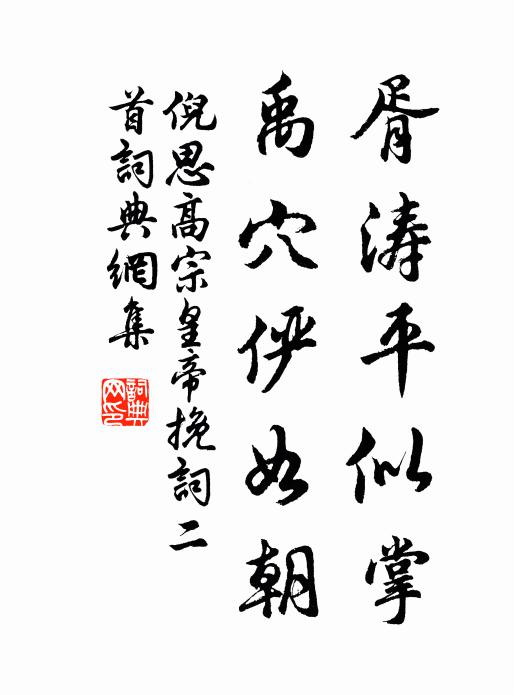 胥涛平似掌
禹穴俨如朝
倪思高宗皇帝挽詞二
首詞典網集
詞典网印